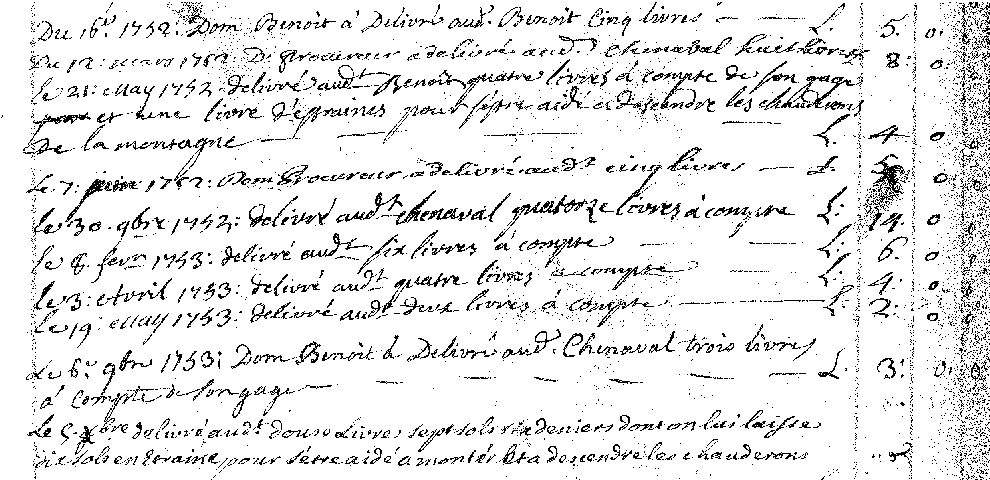 Du 16e. 1752: Dom Benoit à Delivré aud. Benoit Cinq livres — — L. 5. 0.
Du 12: mars 1752: D. Procureur a delivré aud. Chenaval huit livres 8: 0.
le 21: May 1752. delivré audt Benoit quatre livres à compte de son gage
et une livre d'étraines pour s'être aidé à descendre les chauderons
De la montagne — — — L. 4 0
Le 7: juin 1752: Dom Procureur a delivré audt cinq livres — L. 5 0
le 30. 9bre 1752: delivré audt chenaval quatorze livres à compte L: 14. 0
le 8. fevr 1753: delivré audt six livres à compte — — L: 6. 0
le 3: Avril 1753: delivré audt quatre livres à compte — L: 4: 0
Le 19: May 1753: delivré audt deux livres à compte — L: 2: 0
Le 6e. 9bre 1753: Dom Benoit à Delivré aud. Chenaval trois livres
à Compte de son gage — — — — — — L. 3: 0. 0
Le 5. xbre delivré audt douse Livres sept sols six deniers dont on lui laisse
dix sols en Etraine pour s'etre aidé a monter et a descendre les chauderons